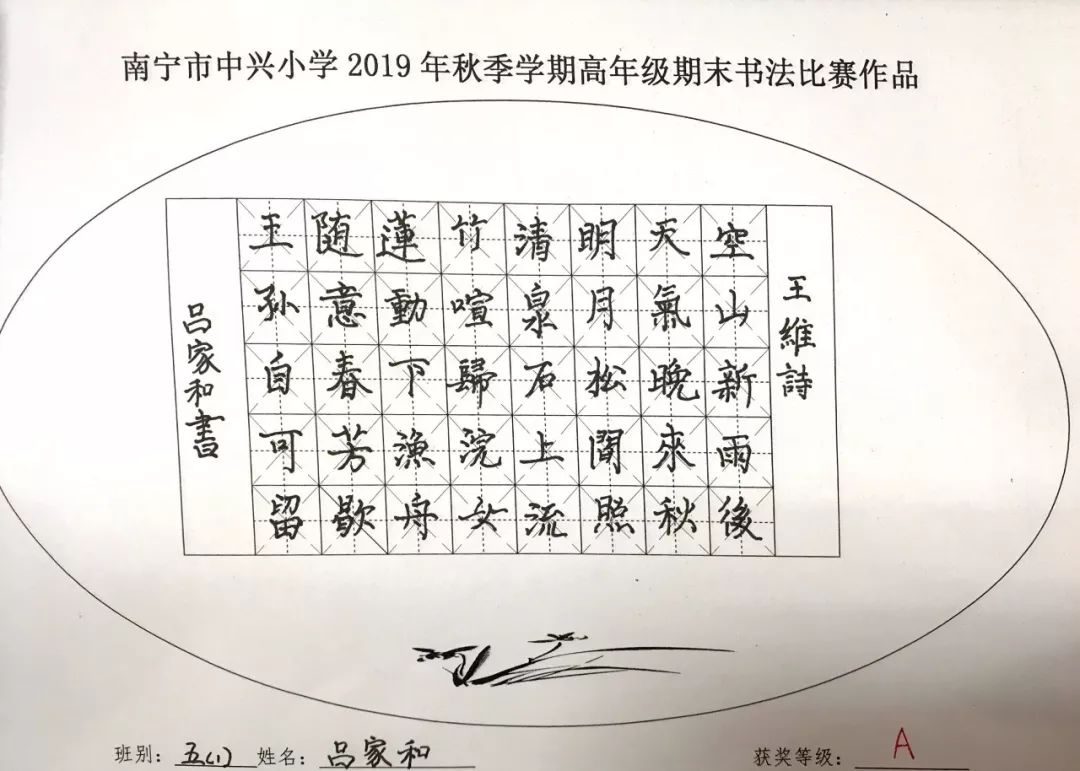 南宁市中兴小学 2019 年秋季学期高年级期末书法比赛作品
王維詩
空山新雨後
天氣晚來秋
明月松間照
清泉石上流
竹喧歸浣女
蓮動下漁舟
随意春芳歇
王孙自可留
吕家和書
班别：五(1) 姓名：吕家和
获奖等级：A